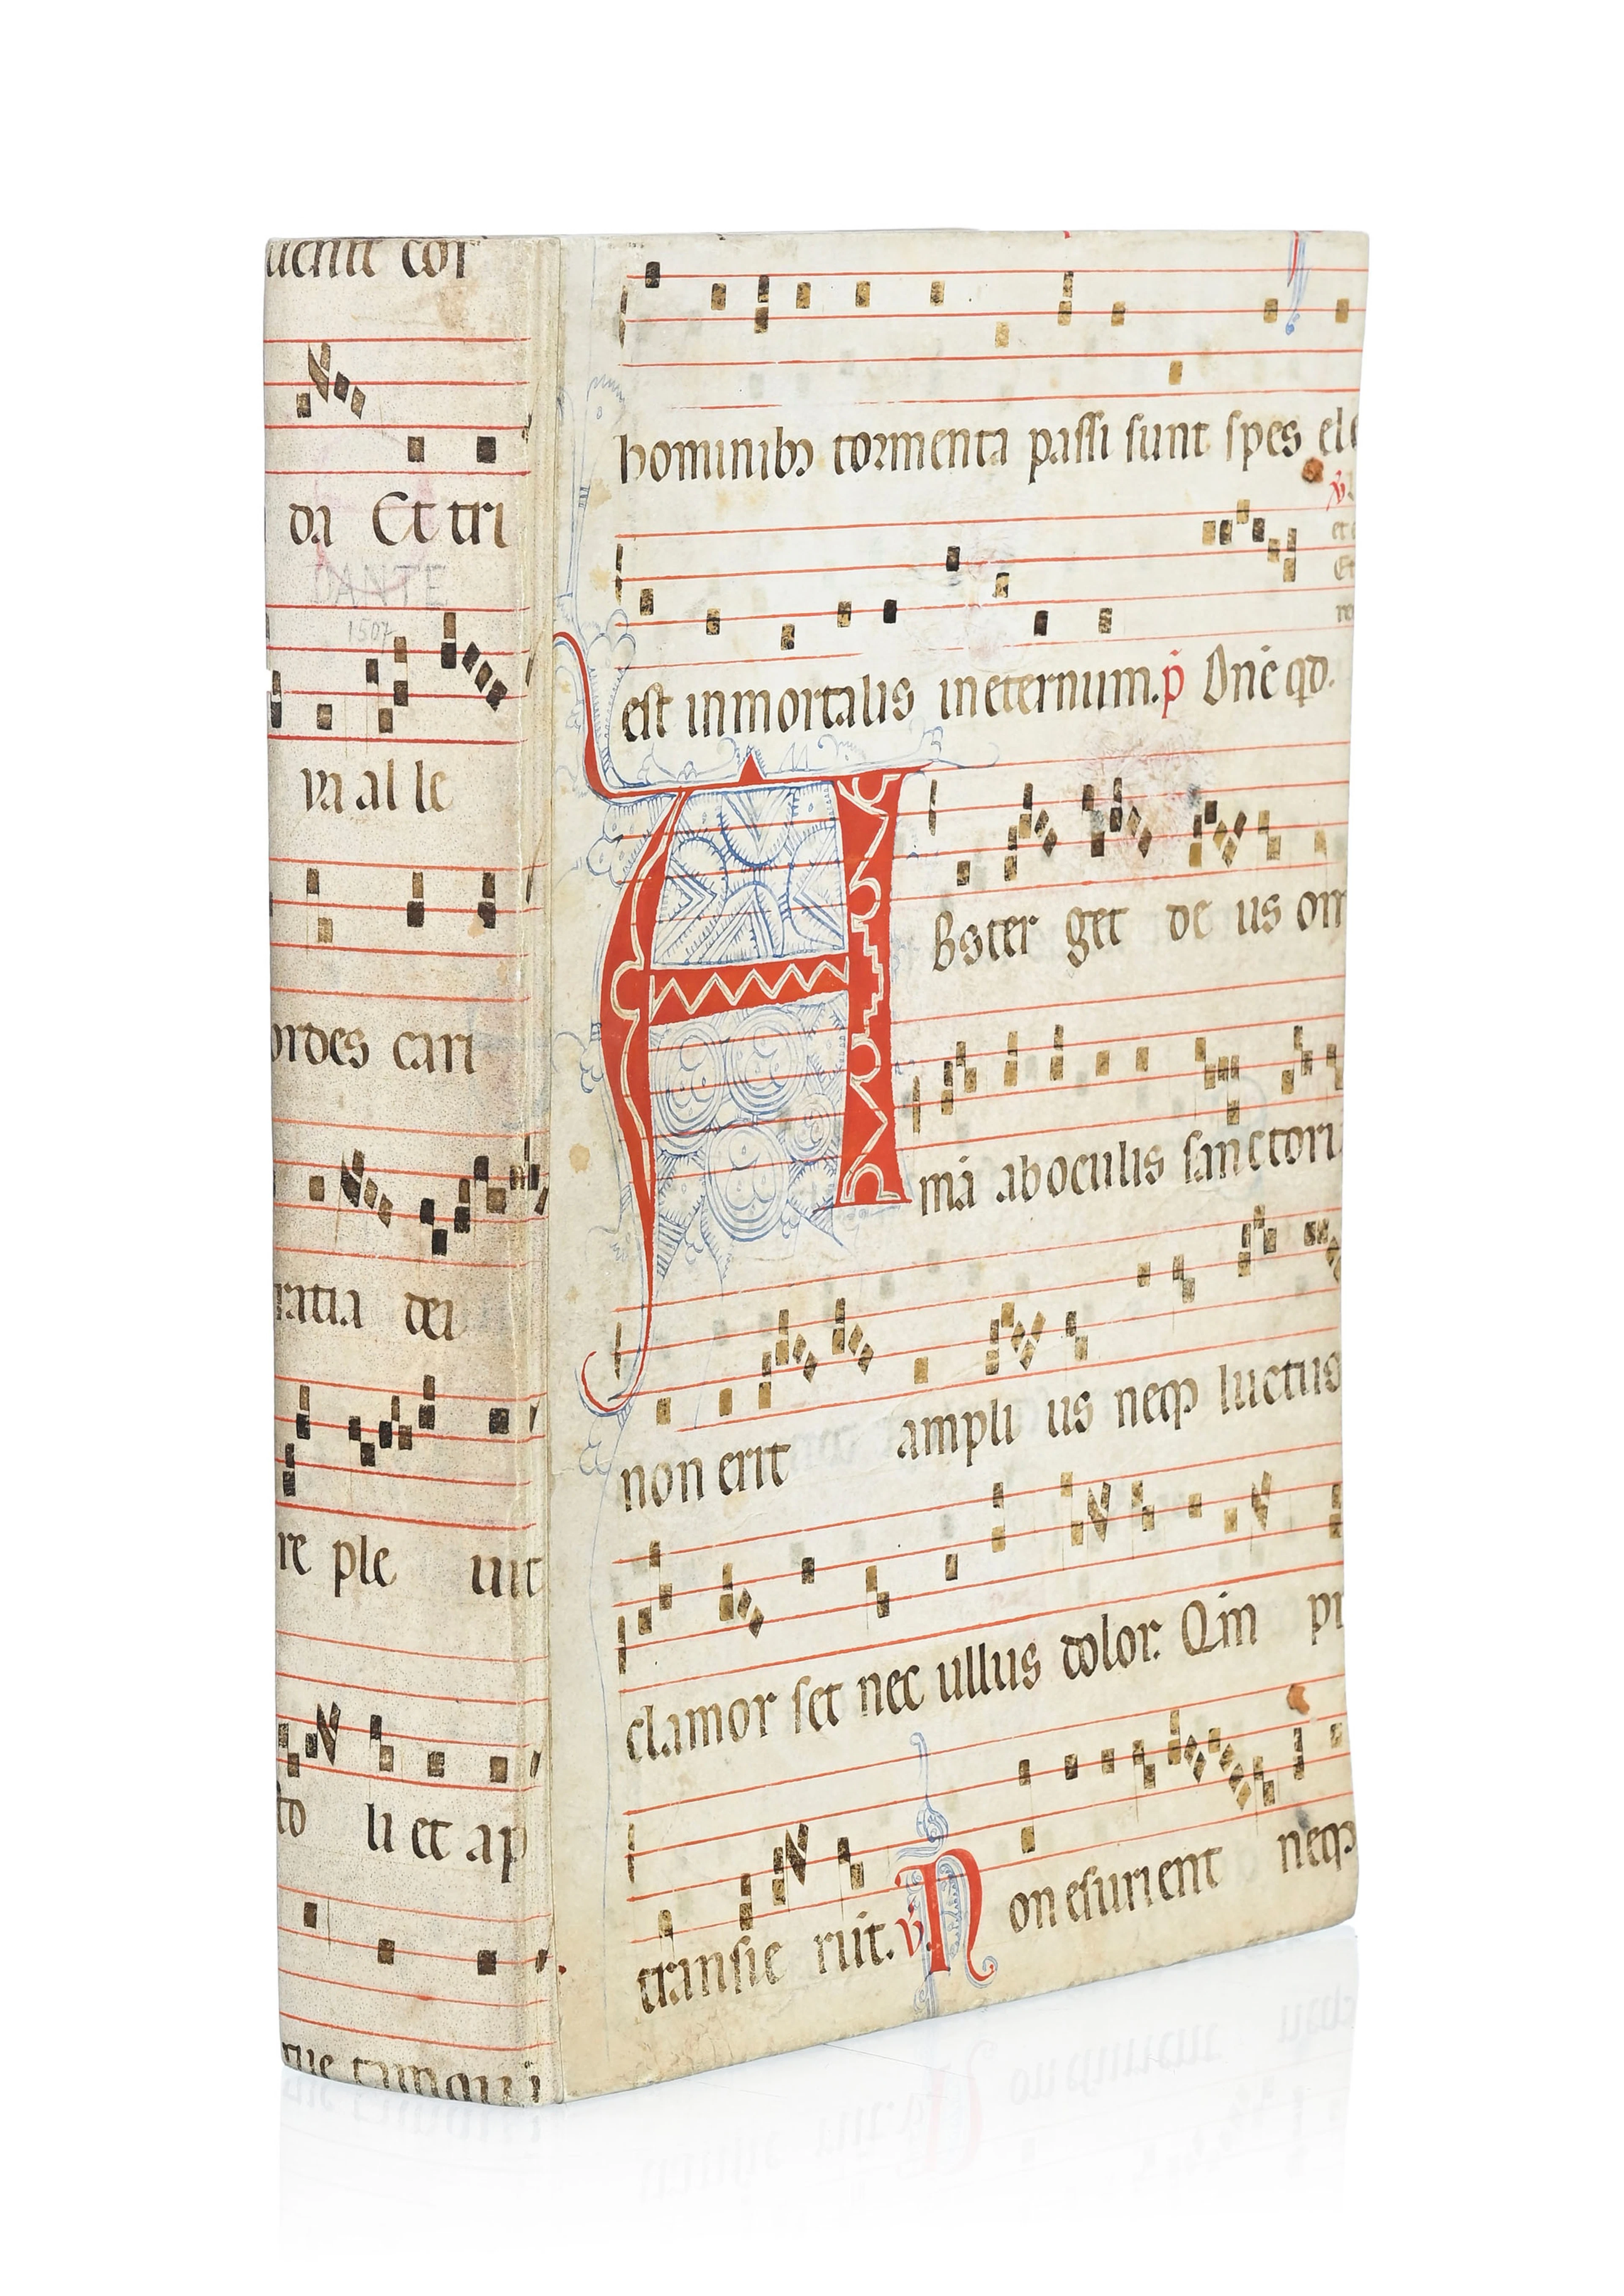 uenit cor
da Et tri
DANTE
1507
ya al le
ordes cari
ratia dei
re ple uit
to li et ap
hominibꝫ tormenta passi sunt spes ele
est inmortalis ineternum. p̄ Dn̄e qd.
A
Bster get de us om
mā aboculis sanctoru
non erit ampli us neqꝫ luctus
clamor set nec ullus dolor. Qm̄ pr
transie rūt. ℣. N on esurient neqꝫ